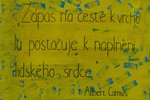 Zápas na cestě k vrcho
lu postačuje k naplnění
lidského srdce.
Albert Camus